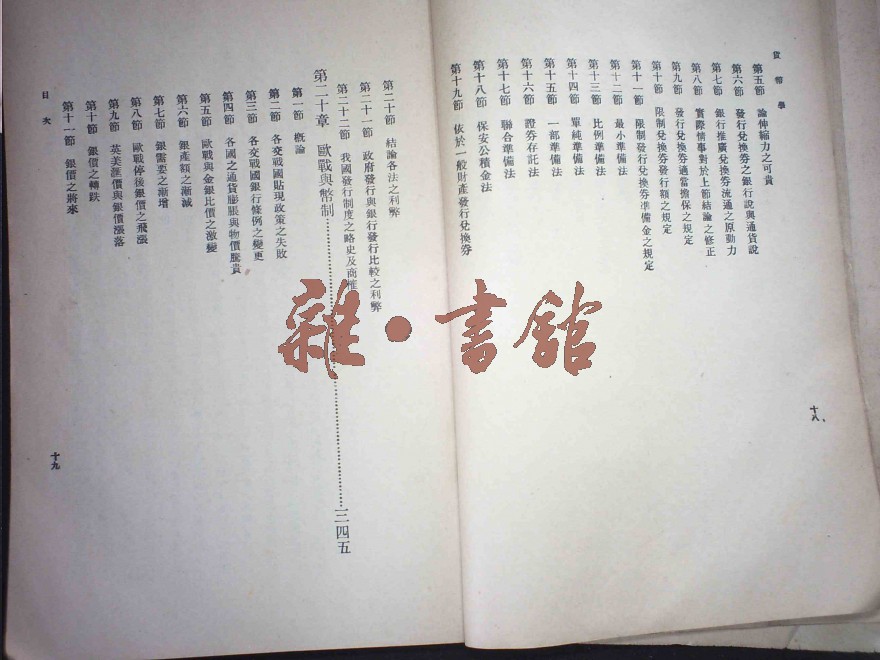 貨幣學
第五節 論伸縮力之可貴
第六節 發行兌換券之銀行說與通貨說
第七節 銀行推廣兌換券流通之原動力
第八節 實際情事對於上節結論之修正
第九節 發行兌換券適當擔保之規定
第十節 限制兌換券發行額之規定
第十一節 限制發行兌換券準備金之規定
第十二節 最小準備法
第十三節 比例準備法
第十四節 單純準備法
第十五節 一部準備法
第十六節 證券存託法
第十七節 聯合準備法
第十八節 保安公積金法
第十九節 依於一般財產發行兌換券
十八
第二十節 結論各法之利弊
第二十一節 政府發行與銀行發行比較之利弊
第二十二節 我國發行制度之略史及商榷
第二十章 歐戰與幣制……三四五
第一節 概論
第二節 各交戰國貼現政策之失敗
第三節 各交戰國銀行條例之變更
第四節 各國之通貨膨脹與物價騰貴
第五節 歐戰與金銀比價之激變
第六節 銀產額之漸減
第七節 銀需要之漸增
第八節 歐戰停後銀價之飛漲
第九節 英美滙價與銀價漲落
第十節 銀價之轉跌
第十一節 銀價之將來
目次
十九
雜·書館